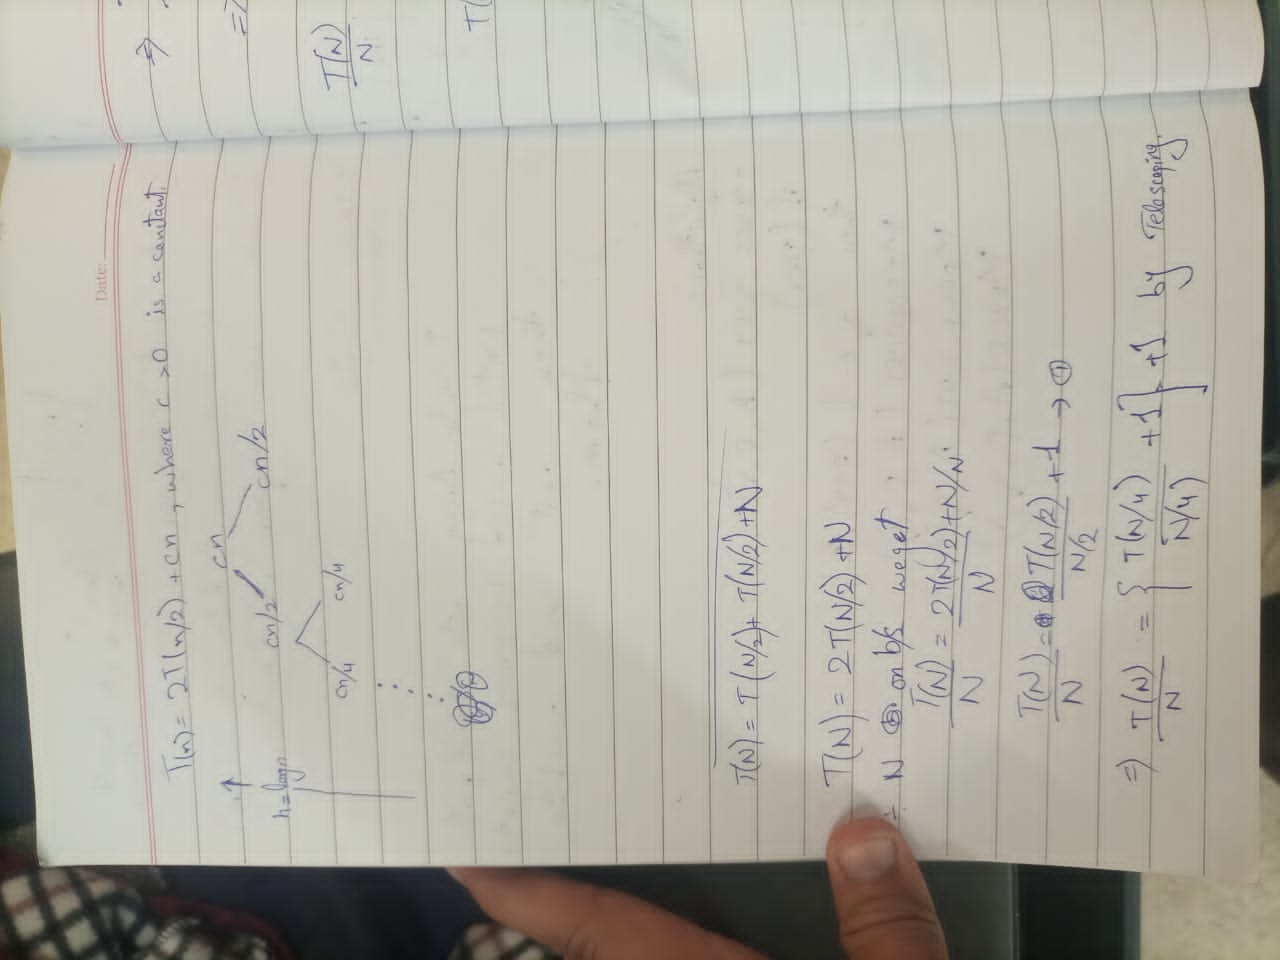 Date:
T(n) = 2T(n/2) + cn, where c >0 is a constant.
cn
h=logn
cn/2 cn/2
cn/4 cn/4
T(N) = T(N/2) + T(N/2) + N
T(N) = 2T(N/2) + N
÷ N on b/s we get
T(N)/N = 2T(N/2)/N + N/N
T(N)/N = T(N/2)/N/2 + 1 →
⇒ T(N)/N = { T(N/4)/N/4 + 1 } + 1 by Telescoping.
⇒
=>
T(N)/N
T(